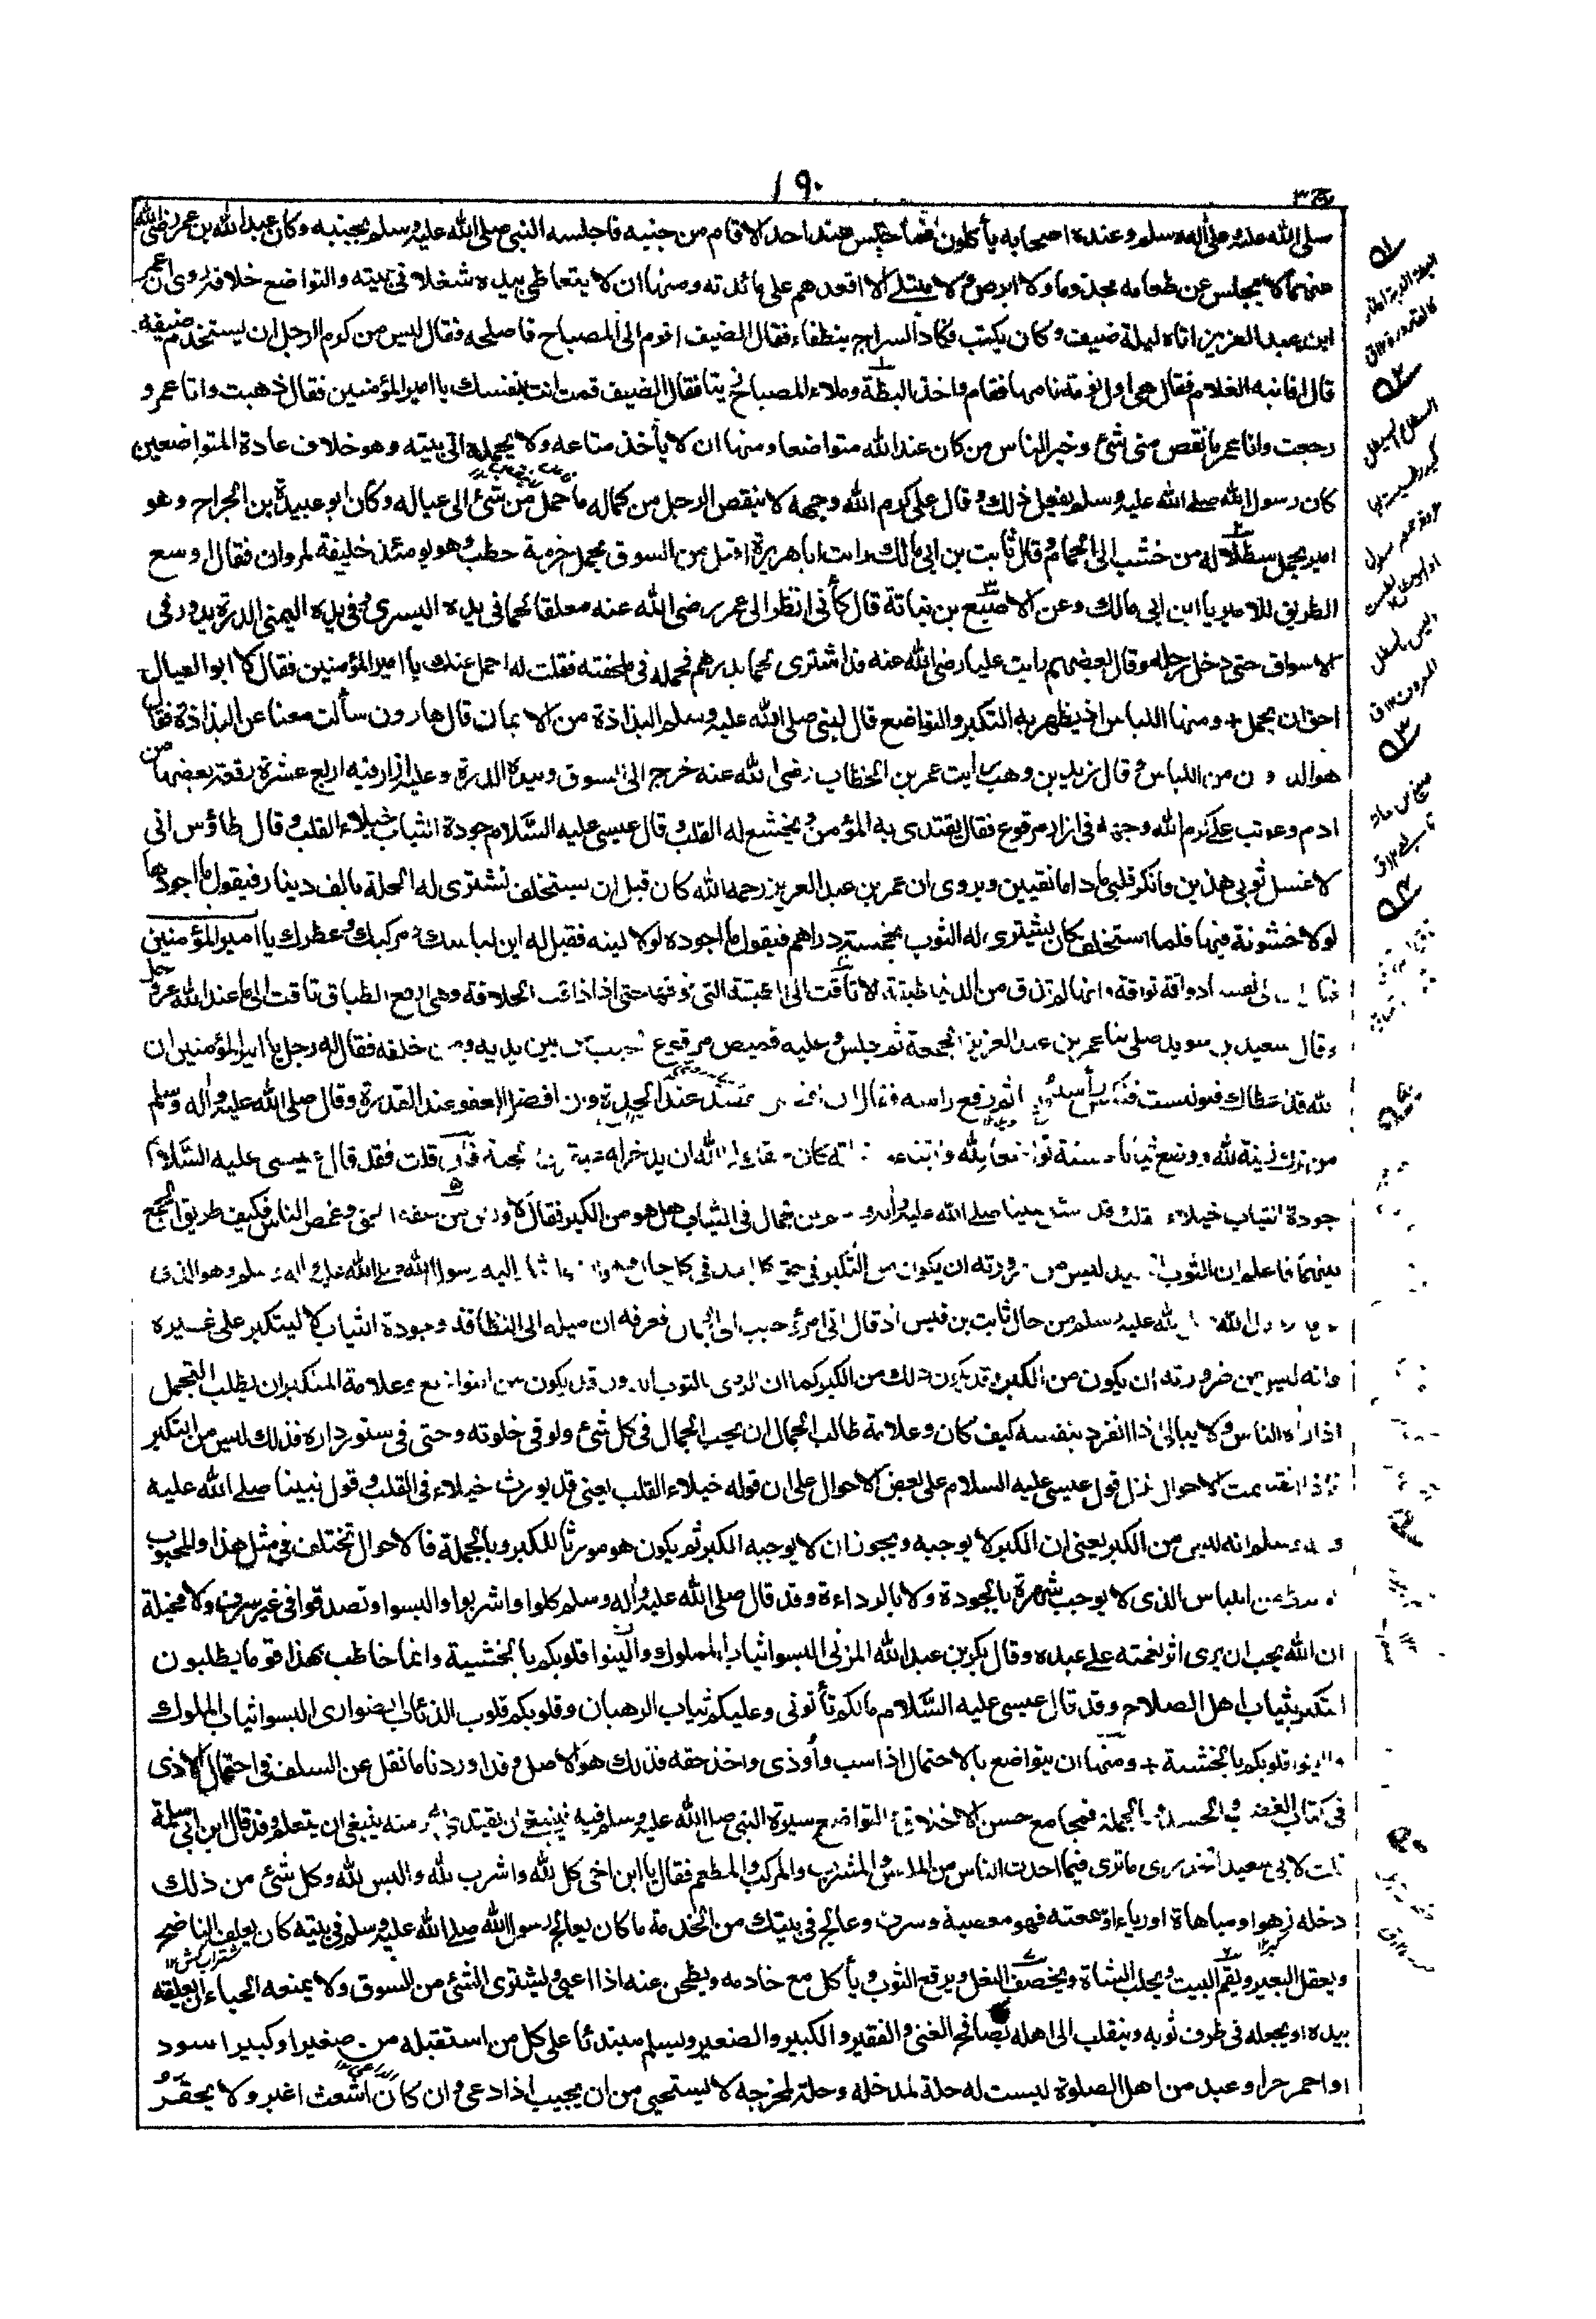 ١٩٠
ج ٣
صلى الله عليه وعلى آله وسلم وعنده اصحابه يأكلون فما جلس عند احد الا قام من جنبه فاجلسه النبي صلى الله عليه وسلم بجنبه وكان عبد الله بن عمر رضى الله
عنهما لا يجلس عن طعامه مجذوما ولا ابرص ولا مبتلے الا اقعدهم على مائدته ومنها ان لا يتعاطى بيده شغلا فى بيته والتواضع خلافه روى ان عمر
ابن عبد العزيز اتاه ليلة ضيف وكان يكتب فكاد السراج ينطفاء فقال الضيف اقوم الى المصباح فاصلحه فقال ليس من كرم الرجل ان يستخدم ضيفه
قال افانبه الغلام فقال هى اول نومة نامها فقام واخذ البطة وملاء المصباح زيتا فقال الضيف قمت انت بنفسك يا امير المؤمنين فقال ذهبت وانا عمر و
رجعت وانا عمر ما نقص منى شئ وخير الناس من كان عند الله متواضعا ومنها ان لا يأخذ متاعه ولا يحمله الى بيته وهو خلاف عادة المتواضعين
كان رسول الله صلے الله عليه وسلم يفعل ذلك وقال على كرم الله وجهه لا ينقص الرجل من كماله ما حمل من شئ الى عياله وكان ابو عبيدة بن الجراح وهو
امير يحمل سطلا له من خشب الى الحمام وقال ثابت بن ابى مالك رايت ابا هريرة اقبل من السوق يحمل حزمة حطب وهو يومئذ خليفة لمروان فقال اوسع
الطريق للامير يا ابن ابى مالك وعن الاصبغ بن نباتة قال كأنى انظر الى عمر رضى الله عنه معلقا لحما فى يده اليسرى وفى يده اليمنى الدرة يدور فى
الاسواق حتى دخل رحله وقال بعضهم رايت عليا رضى الله عنه قد اشترى لحما بدرهم فحمله فى ملحفته فقلت له احمل عنك يا امير المؤمنين فقال لا ابو العيال
احق ان يحمل + ومنها اللباس اذ يظهر به التكبر والتواضع قال لنبى صلى الله عليه وسلم البذاذة من الايمان قال هارون سألت معنا عن البذاذة فقال
هو الدون من اللباس وقال زيد بن وهب رايت عمر بن الخطاب رضى الله عنه خرج الى السوق وبيده الدرة وعليه ازار فيه اربع عشرة رقعة بعضها من
ادم وعوتب على كرم الله وجهه فى ازار مرقوع فقال يقتدى به المؤمن ويخشع له القلب وقال عيسى عليه السلام جودة الثياب خيلاء القلب وقال طاؤس انى
لاغسل ثوبى هذين وانكر قلبى ما داما نقيين ويروى ان عمر بن عبد العزيز رحمه الله كان قبل ان يستخلف تشترى له الحلة بالف دينار فيقول ما اجودها
لولا خشونة فيها فلما استخلف كان يشترى له الثوب بخمسة دراهم فيقول ما اجوده لولا لينه فقيل له اين لباسك ومركبك وعطرك يا امير المؤمنين
فقال ان لى نفسا ذواقة تواقة وانها لم تذق من الدنيا طبقة الا تاقت الى الطبقة التى فوقها حتى اذا ذاقت الخلافة وهى ارفع الطباق تاقت الى ما عند الله عز وجل
وقال سعيد بن سويد صلى بنا عمر بن عبد العزيز الجمعة ثم جلس وعليه قميص مرقوع الجيب من بين يديه ومن خلفه فقال له رجل يا امير المؤمنين ان
الله قد اعطاك فلو لبست فنكس رأسه ثم رفع راسه فقال ان افضل القصد عند الجدة وان افضل العفو عند القدرة وقال صلى الله عليه واله وسلم
من ترك زينة لله ووضع ثيابا حسنة تواضعا لله وابتغاء كان حقا على الله ان يدخر له الجنة فان قلت فقد قال عيسى عليه السلام
جودة الثياب خيلاء القلب وقد سئل نبينا صلے الله عليه واله وسلم عن الجمال فى الثياب هل هو من الكبر فقال لا ولكن من سفه الحق وغمص الناس فكيف طريق الجمع
بينهما فاعلم ان الثوب الجيد ليس من ضرورته ان يكون من التكبر فى حق كل احد فى كل حال وهو الذى اشار اليه رسول الله صلى الله عليه واله وسلم وهو الذى
صلى الله عليه وسلم من حال ثابت بن قيس اذ قال انى امرؤ حبب الى الجمال فعرفه ان ميله الى النظافة وجودة الثياب لا ليتكبر على غيره
وانه ليس من ضرورته ان يكون من الكبر وقد يكون ذلك من الكبر كما ان الرضى بالثوب الدون قد يكون من التواضع وعلامة المتكبر ان يطلب التجمل
اذا راه الناس ولا يبالى اذا انفرد بنفسه كيف كان وعلامة طالب الجمال ان يحب الجمال فى كل شئ ولو فى خلوته وحتى فى ستور داره فذلك ليس من التكبر
فاذا انقسمت الاحوال نزل قول عيسى عليه السلام على بعض الاحوال على ان قوله خيلاء القلب يعنى قد يورث خيلاء فى القلب وقول نبينا صلے الله عليه
واله وسلم انه ليس من الكبر يعنى ان الكبر لا يوجبه ويجوز ان لا يوجبه الكبر ثم يكون هو مورثا للكبر وبالجملة فالاحوال تختلف فى مثل هذا والمحبوب
الوسط من اللباس الذى لا يوجب شهرة بالجودة ولا بالرداءة وقد قال صلى الله عليه واله وسلم كلوا واشربوا والبسوا وتصدقوا فى غير سرف ولا مخيلة
ان الله يحب ان يرى اثر نعمته على عبده وقال بكر بن عبد الله المزنى البسوا ثياب الملوك والينوا قلوبكم بالخشية وانما خاطب بهذا قوما يطلبون
التكبر بثياب اهل الصلاح وقد قال عيسى عليه السلام مالكم تأتونى وعليكم ثياب الرهبان وقلوبكم قلوب الذئاب الضوارى البسوا ثياب الملوك
والينوا قلوبكم بالخشية + ومنها ان يتواضع بالاحتمال اذا سب وأوذى واخذ حقه فذلك هو الاصل وقد اوردنا ما نقل عن السلف فى احتمال الاذى
فى كتاب الغضب والحسد وبالجملة فمجامع حسن الاخلاق والتواضع سيرة النبى صلى الله عليه وسلم فيه فينبغى ان يقتدى به ومنه ينبغى ان يتعلم وقد قال ابن ابى سلمة
قلت لابى سعيد الخدرى ما ترى فيما احدث الناس من الملبس والمشرب والمركب والمطعم فقال يا ابن اخى كل لله واشرب لله والبس لله وكل شئ من ذلك
دخله زهو او مباهاة او رياء او سمعته فهو معصية وسرف وعالج فى بيتك من الخدمة ما كان يعالج رسول الله صلے الله عليه وسلم فى بيته كان يعلف الناضح
ويعقل البعير ويقم البيت ويحلب الشاة ويخصف النعل ويرقع الثوب ويأكل مع خادمه ويطحن عنه اذا اعيى ويشترى الشئ من السوق ولا يمنعه الحياء ان يعلقه
بيده او يجعله فى طرف ثوبه وينقلب الى اهله يصافح الغنى والفقير والكبير والصغير ويسلم مبتدئا على كل من استقبله من صغير او كبير اسود
او احمر حر او عبد من اهل الصلوة ليست له حلة لمدخله وحلة لمخرجه لا يستحيى من ان يجيب اذا دعى وان كان اشعث اغبر ولا يحقر